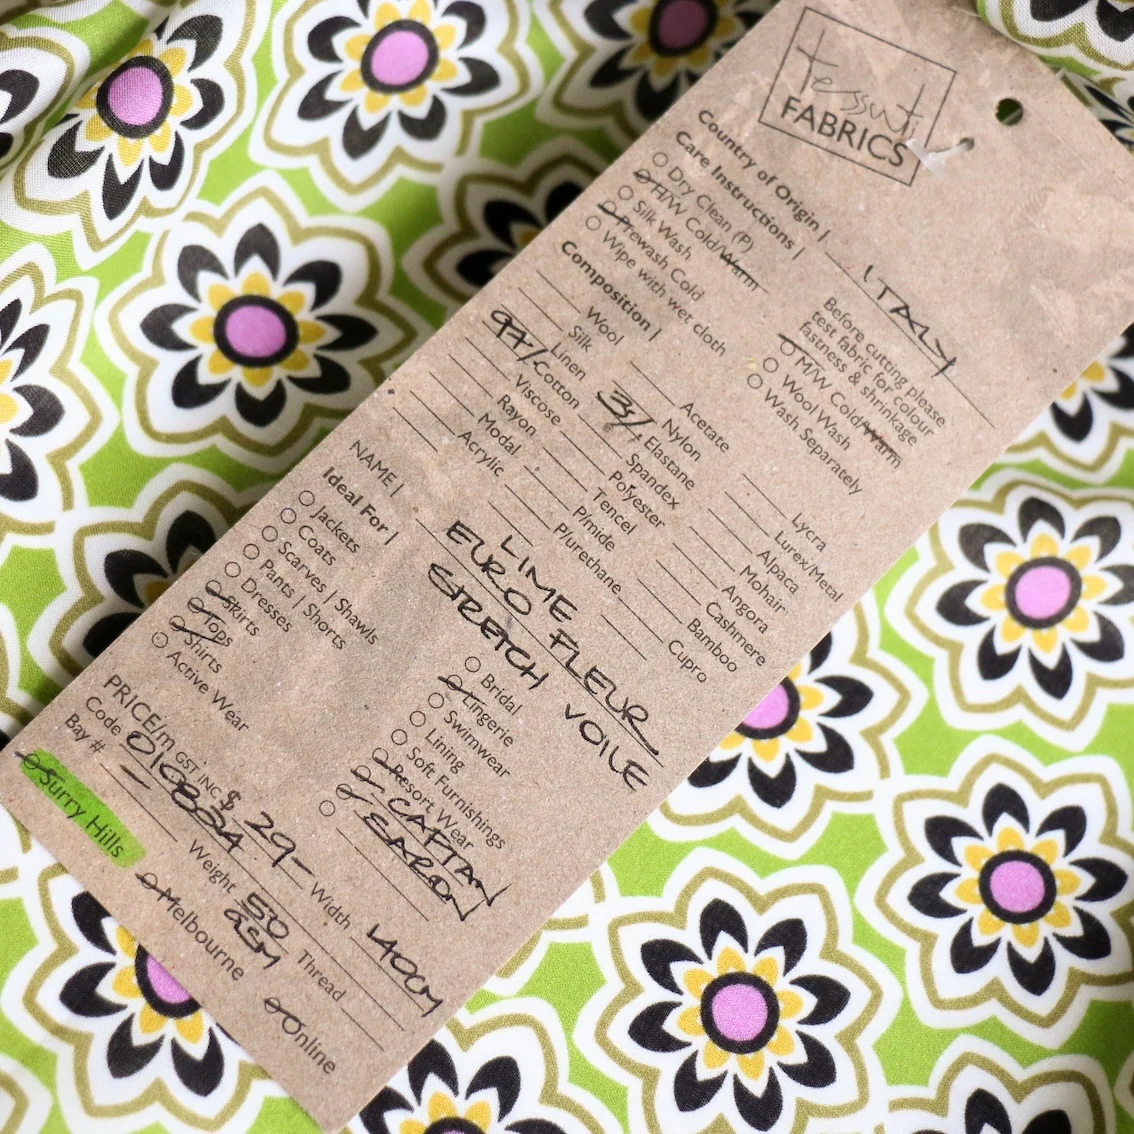 tessuti
FABRICS
Country of Origin | ITALY
Care Instructions |
Dry Clean (P)
H/W Cold/Warm
Silk Wash
Prewash Cold
Wipe with wet cloth
Before cutting please
test fabric for colour
fastness & shrinkage
M/W Cold/Warm
Wool Wash
Wash Separately
Composition |
Wool
Silk
Linen
97/. Cotton
Viscose
Rayon
Modal
Acrylic
Acetate
Nylon
3/. Elastane
Spandex
Polyester
Tencel
P/mide
P/urethane
Lycra
Lurex/Metal
Alpaca
Mohair
Angora
Cashmere
Bamboo
Cupro
NAME | LIME
EURO FLEUR
STRETCH VOILE
Ideal For |
Jackets
Coats
Scarves | Shawls
Pants | Shorts
Dresses
Skirts
Tops
Shirts
Active Wear
Bridal
Lingerie
Swimwear
Lining
Soft Furnishings
Resort Wear
CAFTAN
SARON
PRICE/m GST INC $ 29- Width 140CM
Code Weight 50 GSM Thread
Bay #
Surry Hills
Melbourne
Online